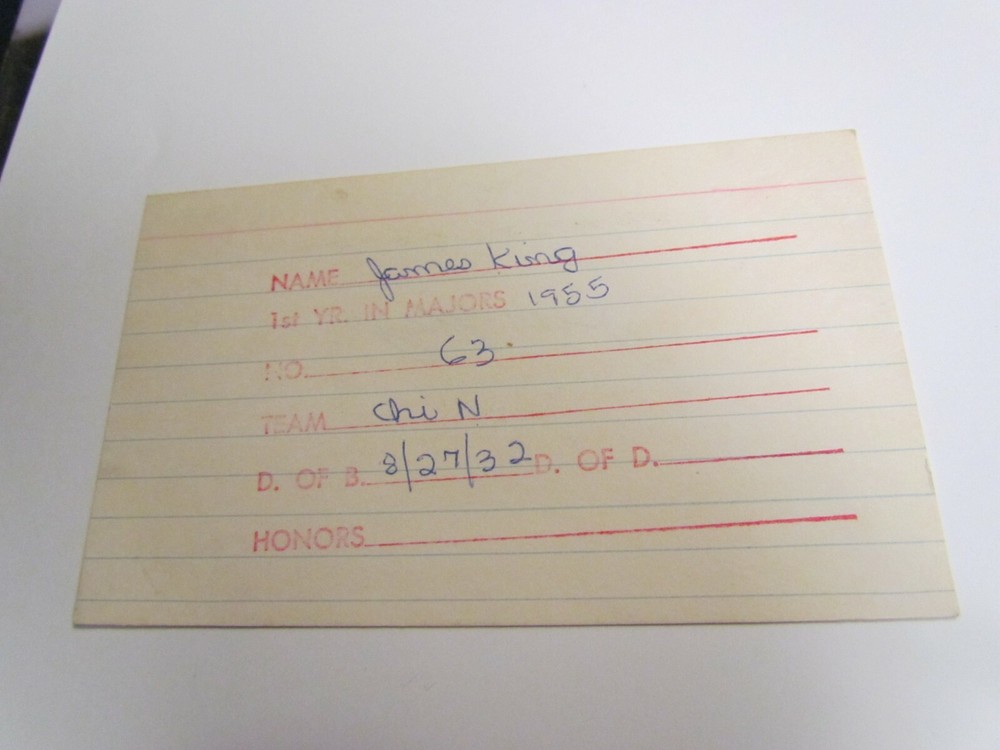 NAME James King
1st YR. IN MAJORS 1955
NO. 63
TEAM Chi N
D. OF B. 8/27/32 D. OF D.
HONORS